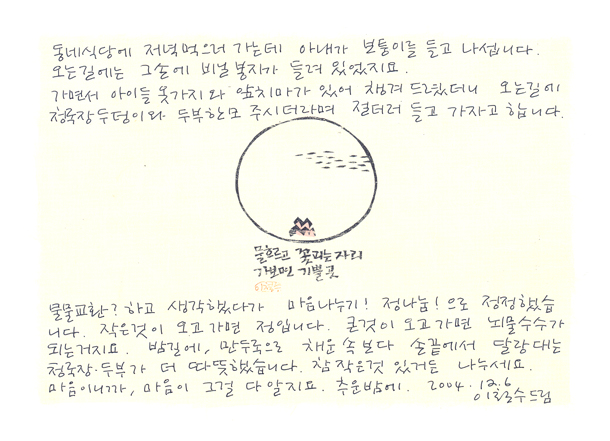 동네식당에 저녁먹으러 가는데 아내가 보퉁이를 들고 나섭니다.
오는길에는 그손에 비닐봉지가 들려 있었지요.
가면서 아이들 옷가지와 앞치마가 있어 챙겨 드렸더니 오는길에
청국장 두덩이와 두부한모 주시더라며 절더러 들고 가자고 합니다.
물흐르고 꽃피는자리
가보면 기쁠 곳
물물교환? 하고 생각했다가 마음나누기! 정나눔!으로 정정했습
니다. 작은것이 오고가면 정입니다. 큰것이 오고가면 뇌물수수가
되는거지요. 밤길에, 만두국으로 채운 속보다 손끝에서 달랑대는
청국장·두부가 더 따뜻했습니다. 참 작은것 있거든 나누세요.
마음이니까, 마음이 그걸 다 알지요. 추운밤에. 2004.12.6
이철수드림